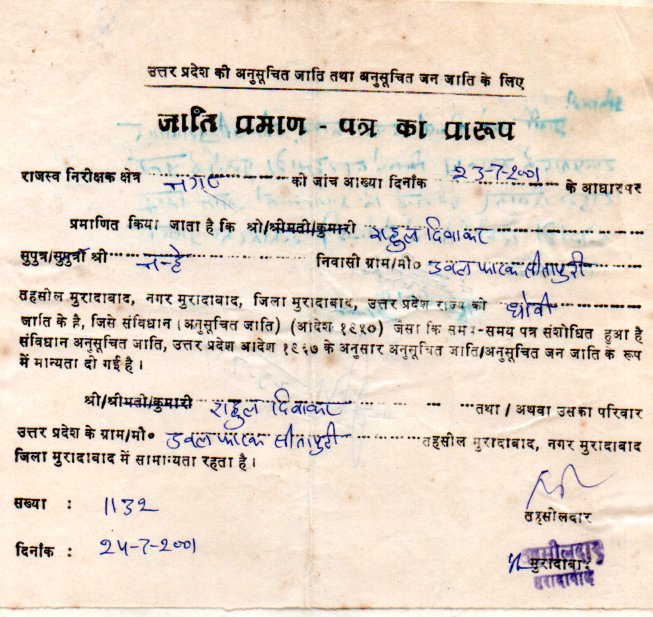 उत्तर प्रदेश की अनुसूचित जाति तथा अनुसूचित जन जाति के लिए
जाति प्रमाण - पत्र का प्रारूप
राजस्व निरीक्षक क्षेत्र नगर को जांच आख्या दिनाँक 23-7-2001 के आधारपर
प्रमाणित किया जाता है कि श्री/श्रीमती/कुमारी राहुल दिवाकर
सुपुत्र/सुपुत्री श्री नन्हे निवासी ग्राम/मौ० डबल फाटक सीतापुरी
तहसील मुरादाबाद, नगर मुरादाबाद, जिला मुरादाबाद, उत्तर प्रदेश राज्य की धोबी
जाति के है, जिसे संबिधान (अनुसूचित जाति) (आदेश १९५०) जैसा कि समय-समय पत्र संशोधित हुआ है
संविधान अनुसूचित जाति, उत्तर प्रदेश आदेश १९६७ के अनुसार अनुसूचित जाति/अनुसूचित जन जाति के रूप
में मान्यता दी गई है।
श्री/श्रीमती/कुमारी राहुल दिवाकर तथा / अथवा उसका परिवार
उत्तर प्रदेश के ग्राम/मौ० डबल फाटक सीतापुरी तहसील मुरादाबाद, नगर मुरादाबाद
जिला मुरादाबाद में सामान्यता रहता है।
सख्या : 1132
तहसीलदार
दिनांक : 24-7-2001
तहसीलदार
मुरादाबाद
मुरादाबाद